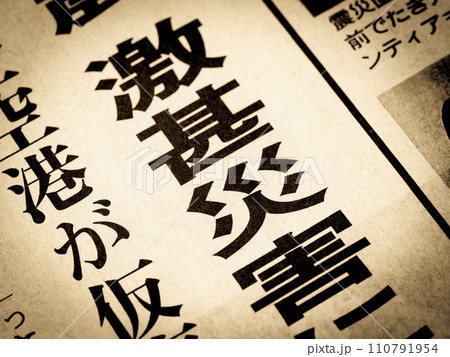 震災
前でたき
ンティア
激甚災害に
空港が仮
っ
pixta.jp - 110791954